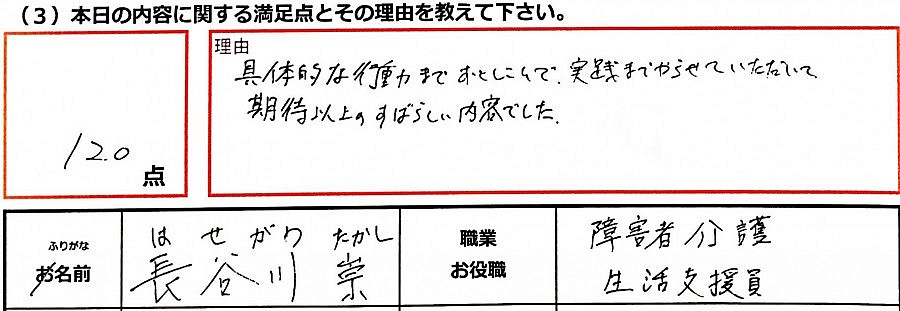 （3）本日の内容に関する満足点とその理由を教えて下さい。
理由
具体的な行動までおとしこんで、実践までやらせていただいて
期待以上のすばらしい内容でした。
120 点
ふりがな
はせがわ たかし
お名前
長谷川 崇
職業
お役職
障害者介護
生活支援員